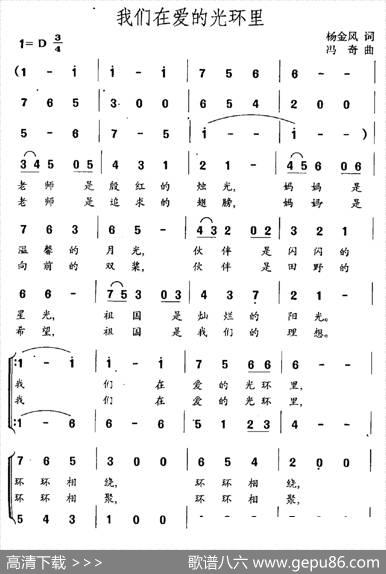 我们在爱的光环里
1=D 3/4
杨金风 词
冯奇 曲
( i - i | i - i | 7 5 6 | 6 - - |
7 6 5 | 3 0 0 | 6 5 4 | 2 0 0 |
5 - 6 | 7 - 5 | i - - | i - - ) |
3 4 5 0 5 | 4 3 1 | 2 1 - | 4 5 6 0 6 |
老师是殷红的烛光， 妈妈是
老师是追求的翅膀， 妈妈是
7 6 3 | 6 5 - | 4 3 2 0 2 | 1 2 3 |
温馨的月光， 伙伴是闪闪的
向前的双桨， 伙伴是田野的
6 6 - | 7 5 3 0 3 | 4 3 7 | 2 1 - |
星光， 祖国是灿烂的阳光。
希望， 祖国是我们的理想。
i - i | i - i | 7 5 6 6 | 6 - - |
我们在爱的光环里，
我们在爱的光环里，
1 - 6 | 6 - 6 | 5 1 2 3 | 4 - - |
7 6 5 | 3 0 0 | 6 5 4 | 2 0 0 |
环环相绕， 环环相绕，
环环相聚， 环环相聚，
5 4 3 | 1 0 0 | 4 3 2 | 6 0 0 |
高清下载 >>>
歌谱八六 www.gepu86.com